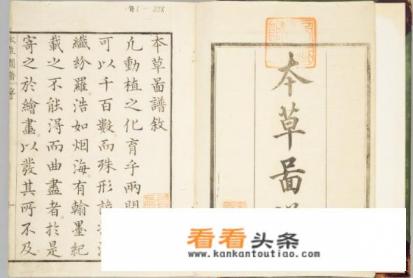 夲草啚
夲草啚譜敘
凢動植之化育乎兩
可以千百數而殊形
纖紛羅浩如烟海有翰墨紀
載之不能得而曲盡者於是
寄之於繪畫以發其所不及
看看头条
www.kankantoutiao.com